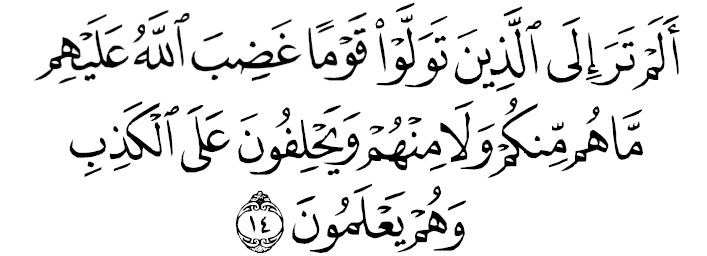 أَلَمْ تَرَ إِلَى ٱلَّذِينَ تَوَلَّوْا۟ قَوْمًا غَضِبَ ٱللَّهُ عَلَيْهِم
مَّا هُم مِّنكُمْ وَلَا مِنْهُمْ وَيَحْلِفُونَ عَلَى ٱلْكَذِبِ
وَهُمْ يَعْلَمُونَ ١٤